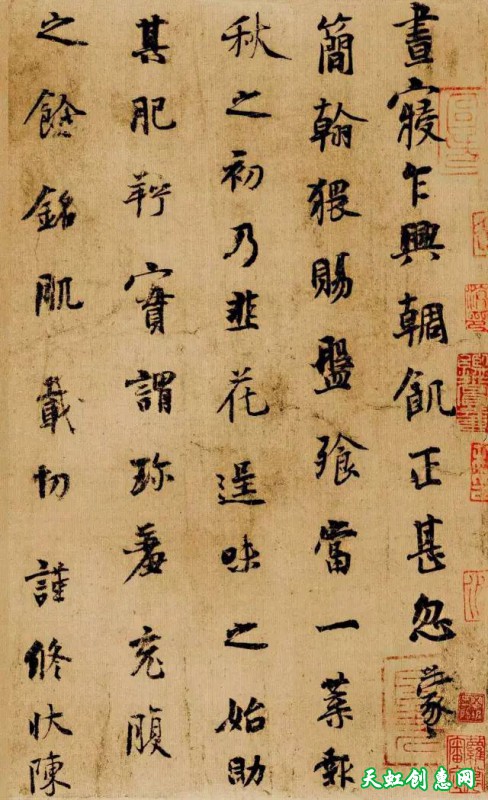 晝寢乍興輖飢正甚忽蒙
簡翰猥賜盤飧當一葉報
秋之初乃韭花逞味之始助
其肥羜實謂珍羞充腹
之餘銘肌載切謹修狀陳
天虹创惠网